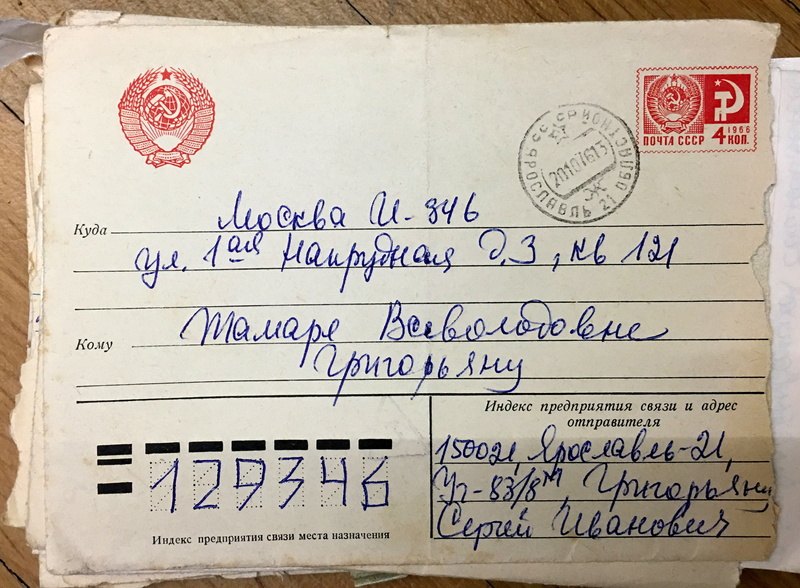 1966
ПОЧТА СССР 4 КОП.
СССР ИОНТ СВЯЗИ ОБЛАСТ ЯРОСЛАВЛЬ 21
20107613
Ж
Куда Москва И-346
ул. 1ая Напрудная д.3, кв 121
Кому Тамаре Всеволодовне
Григорьяну
Индекс предприятия связи и адрес
отправителя
150021, Ярославль-21,
Уг-83/8м, Григорьяну
Сергей Иванович
129346
Индекс предприятия связи места назначения